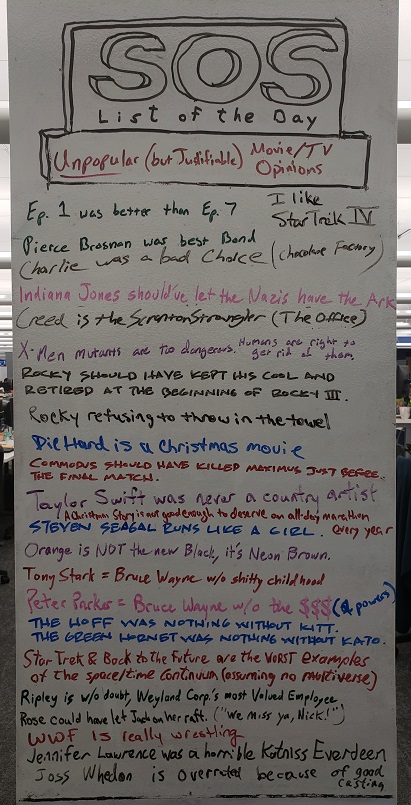 SOS
List of the Day
Unpopular (but Justifiable) Movie/TV Opinions
Ep. 1 was better than Ep. 7
I like Star Trek IV
Pierce Brosnan was best Bond
Charlie was a bad Choice (chocolate Factory)
Indiana Jones should've let the Nazis have the Ark
Creed is the Scranton Strangler (The Office)
X-Men mutants are too dangerous. Humans are right to get rid of them.
ROCKY SHOULD HAVE KEPT HIS COOL AND
RETIRED AT THE BEGINNING OF ROCKY III.
Rocky refusing to throw in the towel
Die Hard is a Christmas movie
COMMODUS SHOULD HAVE KILLED MAXIMUS JUST BEFORE
THE FINAL MATCH.
Taylor Swift was never a country artist
A Christmas Story is not good enough to deserve an all-day marathon every year
STEVEN SEAGAL RUNS LIKE A GIRL.
Orange is NOT the new Black, it's Neon Brown.
Tony Stark = Bruce Wayne w/o shitty childhood
Peter Parker = Bruce Wayne w/o the $$$ (& powers)
THE HOFF WAS NOTHING WITHOUT KITT.
THE GREEN HORNET WAS NOTHING WITHOUT KATO.
Star Trek & Back to the Future are the WORST examples
of the space/time continuum (assuming no multiverse)
Ripley is w/o doubt, Weyland Corp.'s most Valued Employee
Rose could have let Jack on her raft. ("We miss ya, Nick!")
WWF is really wrestling
Jennifer Lawrence was a horrible Katniss Everdeen
Joss Whedon is overrated because of good casting